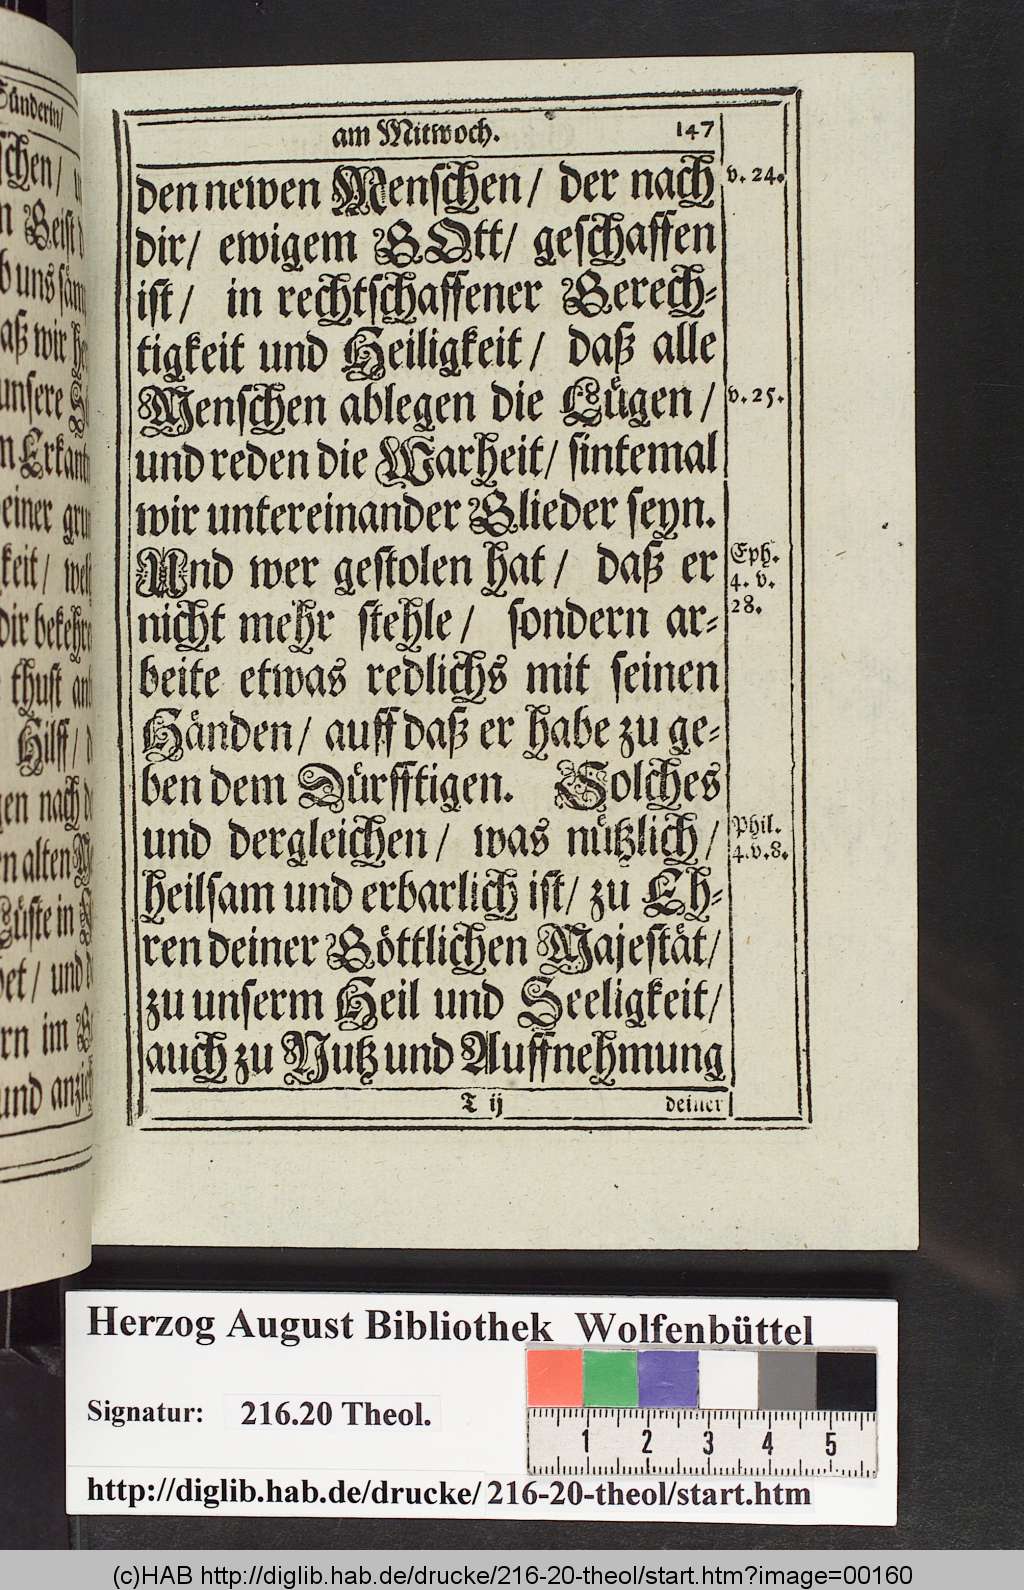 Sünderin/
schen/
Geist
b uns
aß wir
unsere
Erkant
einer
keit/
dir bekehre
thust
Hilff/
gen nach
en alten
Lüste in
bet/ und
rn im
und anzieh
am Mitwoch. 147
den newen Menschen/ der nach v. 24.
dir/ ewigem GOtt/ geschaffen
ist/ in rechtschaffener Gerech-
tigkeit und Heiligkeit/ daß alle
Menschen ablegen die Lügen/ v. 25.
und reden die Warheit/ sintemal
wir untereinander Glieder seyn.
Und wer gestolen hat/ daß er Eph.
4. v.
28.
nicht mehr stehle/ sondern ar-
beite etwas redlichs mit seinen
Händen/ auff daß er habe zu ge-
ben dem Dürfftigen. Solches
und dergleichen/ was nützlich/ Phil.
4. v. 8.
heilsam und erbarlich ist/ zu Eh-
ren deiner Göttlichen Majestät/
zu unserm Heil und Seeligkeit/
auch zu Nutz und Auffnehmung
T ij deiner
Herzog August Bibliothek Wolfenbüttel
Signatur: 216.20 Theol.
1 2 3 4 5
http://diglib.hab.de/drucke/216-20-theol/start.htm
(c)HAB http://diglib.hab.de/drucke/216-20-theol/start.htm?image=00160